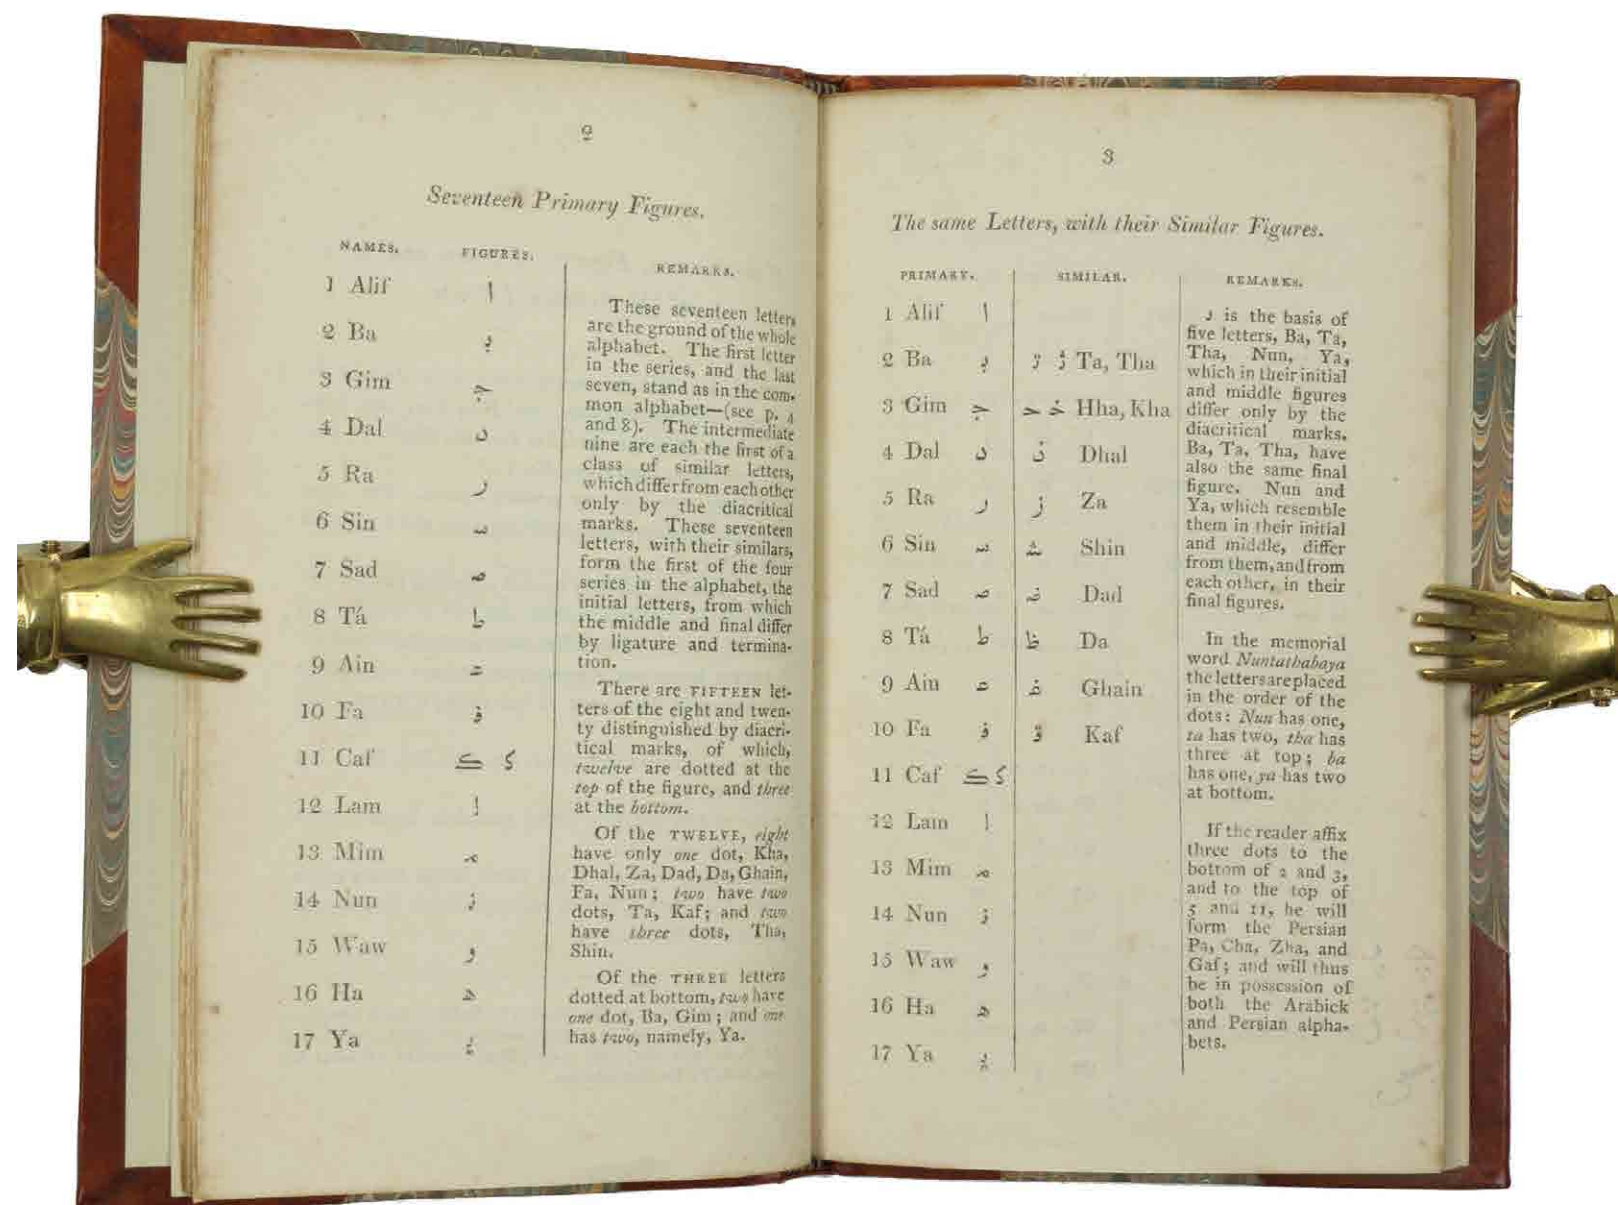 2
Seventeen Primary Figures.
NAMES. FIGURES.
1 Alif ا
2 Ba ﺑ
3 Gim ﺟ
4 Dal د
5 Ra ر
6 Sin ﺳ
7 Sad ﺻ
8 Tá ط
9 Ain ﻋ
10 Fa ﻓ
11 Caf ﻛ ﻛ
12 Lam ﻟ
13 Mim ﻣ
14 Nun ﻧ
15 Waw و
16 Ha ﻫ
17 Ya ﻳ
REMARKS.
These seventeen letters
are the ground of the whole
alphabet. The first letter
in the series, and the last
seven, stand as in the com-
mon alphabet—(see p. 4
and 8). The intermediate
nine are each the first of a
class of similar letters,
which differ from each other
only by the diacritical
marks. These seventeen
letters, with their similars,
form the first of the four
series in the alphabet, the
initial letters, from which
the middle and final differ
by ligature and termina-
tion.
There are FIFTEEN let-
ters of the eight and twen-
ty distinguished by diacri-
tical marks, of which,
twelve are dotted at the
top of the figure, and three
at the bottom.
Of the TWELVE, eight
have only one dot, Kha,
Dhal, Za, Dad, Da, Ghain,
Fa, Nun; two have two
dots, Ta, Kaf; and two
have three dots, Tha,
Shin.
Of the THREE letters
dotted at bottom, two have
one dot, Ba, Gim; and one
has two, namely, Ya.
3
The same Letters, with their Similar Figures.
PRIMARY. SIMILAR.
1 Alif ا
2 Ba ﺑ ﺗ ﺛ Ta, Tha
3 Gim ﺟ ﺣ ﺧ Hha, Kha
4 Dal د ذ Dhal
5 Ra ر ز Za
6 Sin ﺳ ﺷ Shin
7 Sad ﺻ ﺿ Dad
8 Tá ط ظ Da
9 Ain ﻋ ﻏ Ghain
10 Fa ﻓ ﻗ Kaf
11 Caf ﻛ ﻛ
12 Lam ﻟ
13 Mim ﻣ
14 Nun ﻧ
15 Waw و
16 Ha ﻫ
17 Ya ﻳ
REMARKS.
is the basis of
five letters, Ba, Ta,
Tha, Nun, Ya,
which in their initial
and middle figures
differ only by the
diacritical marks.
Ba, Ta, Tha, have
also the same final
figure. Nun and
Ya, which resemble
them in their initial
and middle, differ
from them, and from
each other, in their
final figures.
In the memorial
word Nuntathabaya
the letters are placed
in the order of the
dots: Nun has one,
ta has two, tha has
three at top; ba
has one, ya has two
at bottom.
If the reader affix
three dots to the
bottom of 2 and 3,
and to the top of
5 and 11, he will
form the Persian
Pa, Cha, Zha, and
Gaf; and will thus
be in possession of
both the Arabick
and Persian alpha-
bets.